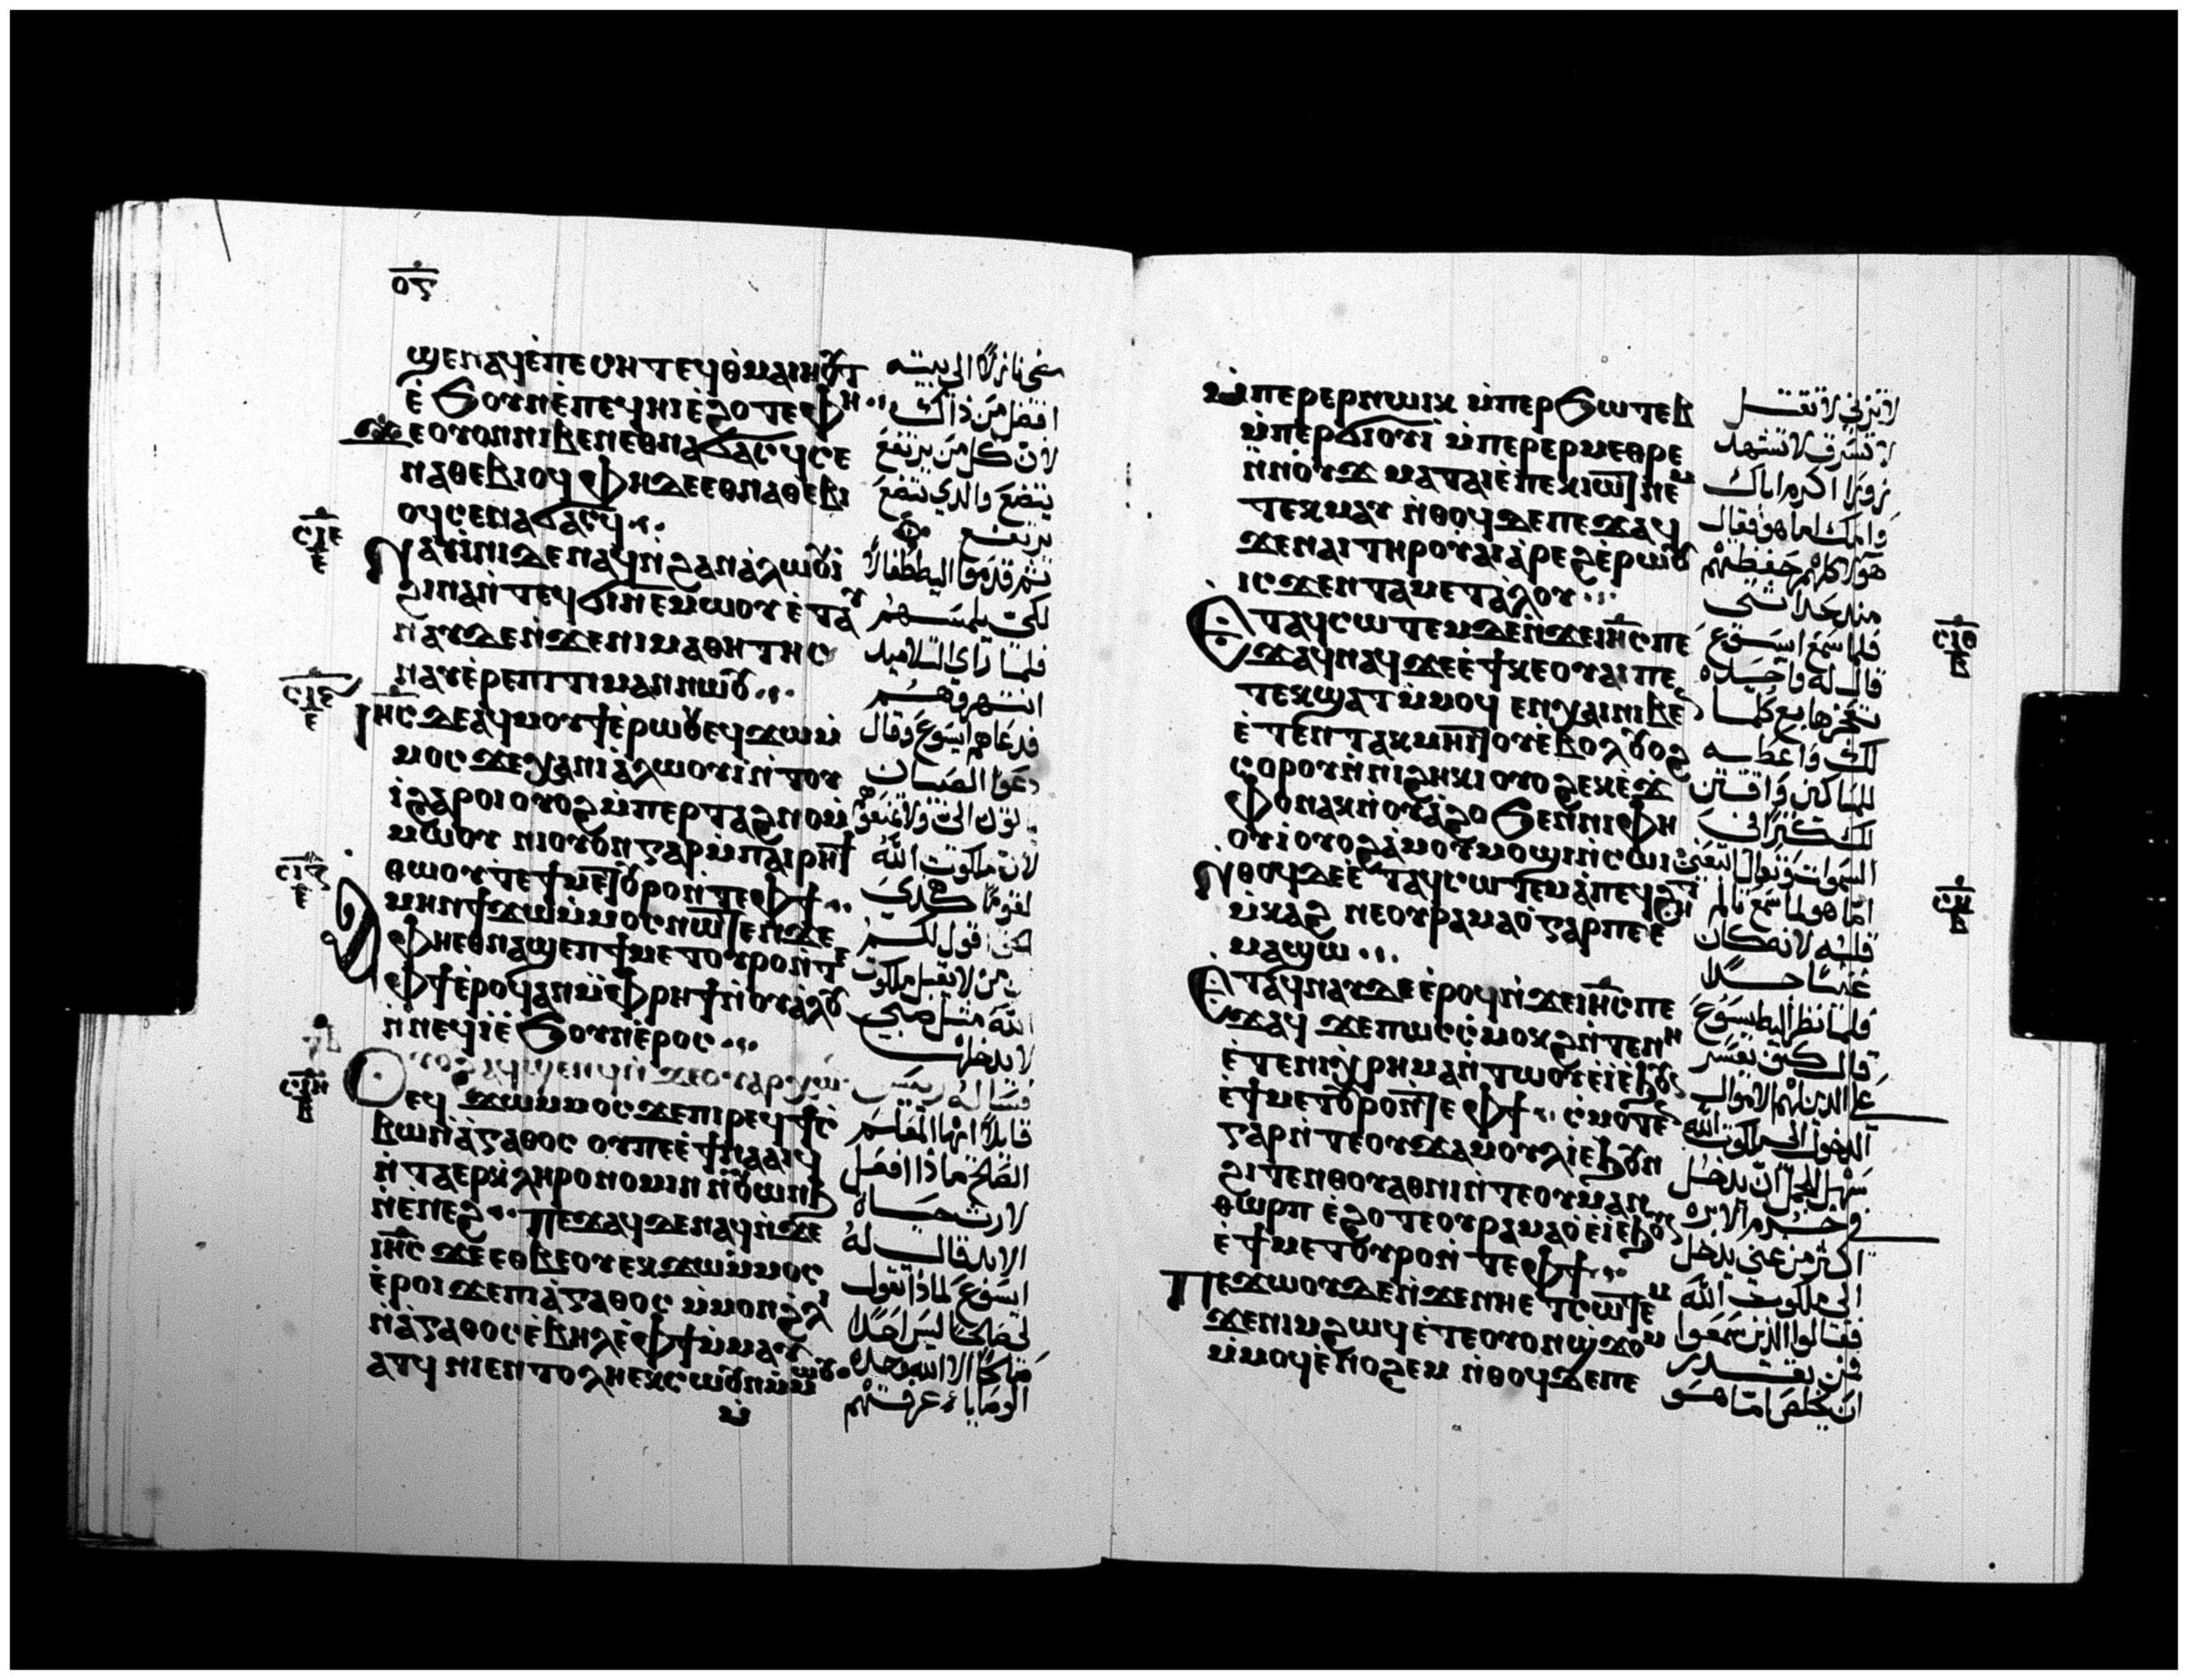 ⲟⲋ
ϣⲉⲛⲁϥ ⲉ̀ⲡⲉⲥⲏⲧ ⲉϥⲑ̀ⲙⲁⲓⲏⲟⲩⲧ
ⲉ̀ϧⲟⲩⲛ ⲉ̀ⲡⲉϥⲏⲓ ⲉ̀ϩⲟⲧⲉ ⲫⲏ
ϫⲉ ⲟⲩⲟⲛ ⲛⲓⲃⲉⲛ ⲉⲑⲛⲁϭⲁⲥϥ ⲥⲉ
ⲛⲁⲑⲉⲃⲓⲟϥ ⲫⲏ ⲇⲉ ⲉⲑⲛⲁⲑⲉⲃⲓ
ⲟϥ ⲥⲉⲛⲁϭⲁⲥϥ
ⲥⲓⲉ
ⲛⲁⲩⲓ̀ⲛⲓ ⲇⲉ ⲛⲁϥ ⲛ̀ϩⲁⲛⲁ̀ⲗⲱⲟⲩⲓ̀
ϩⲓⲛⲁ ⲛ̀ⲧⲉϥϭⲓ ⲛⲉⲙⲱⲟⲩ ⲉ̀ⲧⲁⲩ
ⲛⲁⲩ ⲇⲉ ⲛ̀ϫⲉ ⲛⲓⲙⲁⲑⲏⲧⲏⲥ
ⲛⲁⲩⲉ̀ⲣⲉⲡⲓⲧⲓⲙⲁⲛ ⲛⲱⲟⲩ
ⲓⲏⲥ ⲇⲉ ⲁϥⲙⲟⲩϯ ⲉ̀ⲣⲱⲟⲩ ⲉϥϫⲱ ⲙ̀
ⲙⲟⲥ ϫⲉ ⲭⲁ ⲛⲓⲁ̀ⲗⲱⲟⲩⲓ̀ ⲛ̀ⲧⲟⲩ
ⲓ̀ ϩⲁⲣⲟⲓ ⲟⲩⲟϩ ⲙ̀ⲡⲉⲣⲧⲁϩⲛⲟ ⲙ̀
ⲙⲱⲟⲩ ⲛⲓⲟⲩⲟⲛ ⲅⲁⲣ ⲙ̀ⲡⲁⲓⲣⲏϯ
ⲑⲱⲟⲩ ⲧⲉ ϯⲙⲉⲧⲟⲩⲣⲟ ⲛ̀ⲧⲉ ⲫϯ
ⲥⲓⲍ
ⲁⲙⲏⲛ ϯϫⲱ ⲙ̀ⲙⲟⲥ ⲛⲱⲧⲉⲛ ϫⲉ
ⲫⲏ ⲉⲑⲛⲁϣⲉⲡ ϯⲙⲉⲧⲟⲩⲣⲟ ⲛ̀ⲧⲉ
ⲫϯ ⲉ̀ⲣⲟϥ ⲁⲛ ⲙ̀ⲫⲣⲏϯ ⲛ̀ⲟⲩⲁ̀ⲗⲟⲩ
ⲛ̀ⲛⲉϥⲓ̀ ⲉ̀ϧⲟⲩⲛ ⲉ̀ⲣⲟⲥ
ⲥⲓⲏ
ⲟⲩⲟϩ ⲁϥϣⲉⲛϥ ⲛ̀ϫⲉ ⲟⲩⲁⲣⲭⲱⲛ
ⲉϥϫⲱ ⲙ̀ⲙⲟⲥ ϫⲉ ⲡⲓⲣⲉϥϯⲥ̀
ⲃⲱ ⲛ̀ⲁ̀ⲅⲁⲑⲟⲥ ⲟⲩ ⲡⲉ ⲉ̀ϯⲛⲁⲁⲓϥ
ⲛ̀ⲧⲁⲉⲣⲕ̀ⲗⲏⲣⲟⲛⲟⲙⲓⲛ ⲛ̀ⲟⲩⲱⲛϧ
ⲛ̀ⲉⲛⲉϩ ⲡⲉϫⲁϥ ⲇⲉ ⲛⲁϥ ⲛ̀ϫⲉ
ⲓⲏⲥ ϫⲉ ⲉⲑⲃⲉⲟⲩ ⲉⲕϫⲱ ⲙ̀ⲙⲟⲥ
ⲉ̀ⲣⲟⲓ ϫⲉ ⲡⲓⲁ̀ⲅⲁⲑⲟⲥ ⲙ̀ⲙⲟⲛ ϩ̀ⲗⲓ
ⲛ̀ⲁ̀ⲅⲁⲑⲟⲥ ⲉ̀ⲃⲏⲗ ⲉ̀ⲫϯ ⲙ̀ⲙⲁⲩ
ⲁⲧϥ ⲛⲓⲉⲛⲧⲟⲗⲏ ⲕⲥⲱⲟⲩⲛ ⲙ̀ⲙⲱⲟⲩ
ⲙ̀
افضل من ذاك
لان كل من يرتفع
يتضع والذي يتضع
يرتفع
ثم قدموا اليه اطفالا
لكي يلمسهم
فلما راي التلاميد
انتهروهم
فدعاهم ايسوع وقال
دعوا الصبيان
لان ملكوت الله
من لا يقبل ملكوت
الله مثل صبي
لا يدخلها
قايلا ايها المعلم
الصالح ماذا افعل
لارث حياه
الابد قال له
ايسوع لماذا تقول
لي صالحا ليس احدا
صالحا الا الله وحده
الوصايا عرفتهم
ⲙ̀ⲡⲉⲣⲉⲣⲛⲱⲓⲕ ⲙ̀ⲡⲉⲣϧⲱⲧⲉⲃ
ⲙ̀ⲡⲉⲣϭⲓⲟⲩⲓ̀ ⲙ̀ⲡⲉⲣⲉⲣⲙⲉⲑⲣⲉ
ⲛ̀ⲛⲟⲩϫ ⲙⲁⲧⲁⲓⲉ̀ ⲡⲉⲕⲓⲱⲧ ⲛⲉⲙ
ⲧⲉⲕⲙⲁⲩ ⲛ̀ⲑⲟϥ ⲇⲉ ⲡⲉϫⲁϥ
ϫⲉ ⲛⲁⲓ ⲧⲏⲣⲟⲩ ⲁⲓⲁ̀ⲣⲉϩ ⲉ̀ⲣⲱⲟⲩ
ⲓⲥϫⲉⲛ ⲧⲁⲙⲉⲧⲁ̀ⲗⲟⲩ
ⲥⲓⲑ
ⲉⲧⲁϥⲥⲱⲧⲉⲙ ⲇⲉ ⲛ̀ϫⲉ ⲓⲏⲥ ⲡⲉ
ϫⲁϥ ⲛⲁϥ ϫⲉ ⲉ̀ϯ ⲕⲉⲟⲩⲁⲓ ⲡⲉ
ⲧⲉⲕϣⲁⲧ ⲙ̀ⲙⲟϥ ⲉⲛⲭⲁⲓ ⲛⲓⲃⲉⲛ
ⲉ̀ⲧⲉⲛⲧⲁⲕ ⲙⲏⲓⲧⲟⲩ ⲉ̀ⲃⲟⲗ ⲟⲩⲟϩ
ⲥⲟⲣⲟⲩ ⲛ̀ⲛⲓϩⲏⲕⲓ ⲟⲩⲟϩ ⲉⲕⲉ̀ϫ
ⲫⲟ ⲛⲁⲕ ⲛ̀ⲟⲩⲁ̀ϩⲟ ϧⲉⲛ ⲛⲓⲫⲏ
ⲟⲩⲓ̀ ⲟⲩⲟϩ ⲁ̀ⲙⲟⲩ ⲙⲟϣⲓ ⲛ̀ⲥⲱⲓ
ⲛⲑⲟϥ ⲇⲉ ⲉ̀ⲧⲁϥⲥⲱⲧⲉⲙ ⲁ̀ⲡⲉϥϩⲏⲧ
ⲙ̀ⲕⲁϩ ⲛⲉ ⲟⲩⲣⲁⲙⲁⲟ̀ ⲅⲁⲣ ⲡⲉ ⲉ
ⲙⲁϣⲱ
ⲥⲕ
ⲉⲧⲁϥⲛⲁⲩ ⲇⲉ ⲉ̀ⲣⲟϥ ⲛ̀ϫⲉ ⲓⲏⲥ ⲡⲉ
ϫⲁϥ ϫⲉ ⲡⲱⲥ ⲥ̀ⲙⲟⲕϩ ⲛ̀ⲧⲉ ⲛⲏ
ⲉ̀ⲧⲉ ⲛⲓⲭⲣⲏⲙⲁ ⲛ̀ⲧⲱⲟⲩ ⲉ̀ⲓ̀ ⲉ̀ϧⲟⲩⲛ
ⲉ̀ϯⲙⲉⲧⲟⲩⲣⲟ ⲛ̀ⲧⲉ ⲫϯ ⲥ̀ⲙⲟⲧⲉⲛ
ⲅⲁⲣ ⲛ̀ⲧⲉ ⲟⲩϫⲁⲙⲟⲩⲗ ⲓ̀ ⲉ̀ϧⲟⲩⲛ
ϩⲓⲧⲉⲛ ⲑⲟⲩⲁⲑⲛⲓ ⲛ̀ⲧⲉ ⲟⲩⲙⲁⲛ
ⲑⲱⲣⲡ ⲉ̀ϩⲟⲧⲉ ⲟⲩⲣⲁⲙⲁⲟ̀ ⲉ̀ⲓ̀ ⲉ̀ϧⲟⲩⲛ
ⲉ̀ϯⲙⲉⲧⲟⲩⲣⲟ ⲛ̀ⲧⲉ ⲫϯ
ⲡⲉϫⲱⲟⲩ ⲇⲉ ⲛ̀ϫⲉ ⲛⲏ ⲉⲧⲥⲱⲧⲉⲙ
ϫⲉ ⲛⲓⲙ ϩⲱϥ ⲉ̀ⲧⲉ ⲟⲩⲟⲛ ϣϫⲟⲙ
ⲙ̀ⲙⲟϥ ⲉ̀ⲛⲟϩⲉⲙ ⲛ̀ⲑⲟϥ ⲇⲉ ⲡⲉ
لا تزني لا تقتل
لا تسرق لا تشهد
زورا اكرم اباك
وامك اما هو فقال
هولا كلهم حفظتهم
فلما سمع ايسوع
قال له واحده
لك واعطيه
للمساكين واقتني
لك كنزا في
السموات وتعال اتبعني
اما هو لما سمع تالم
قلبه لانه كان
غنيا جدا
فلما نظر اليه ايسوع
قال كيف يعسر
علي الذين لهم الاموال
الدخول الي ملكوت الله
سهل الجمل ان يدخل
اكثر من غني يدخل
الي ملكوت الله
فقالوا الذين سمعوا
فمن يقدر
ان يخلص اما هو